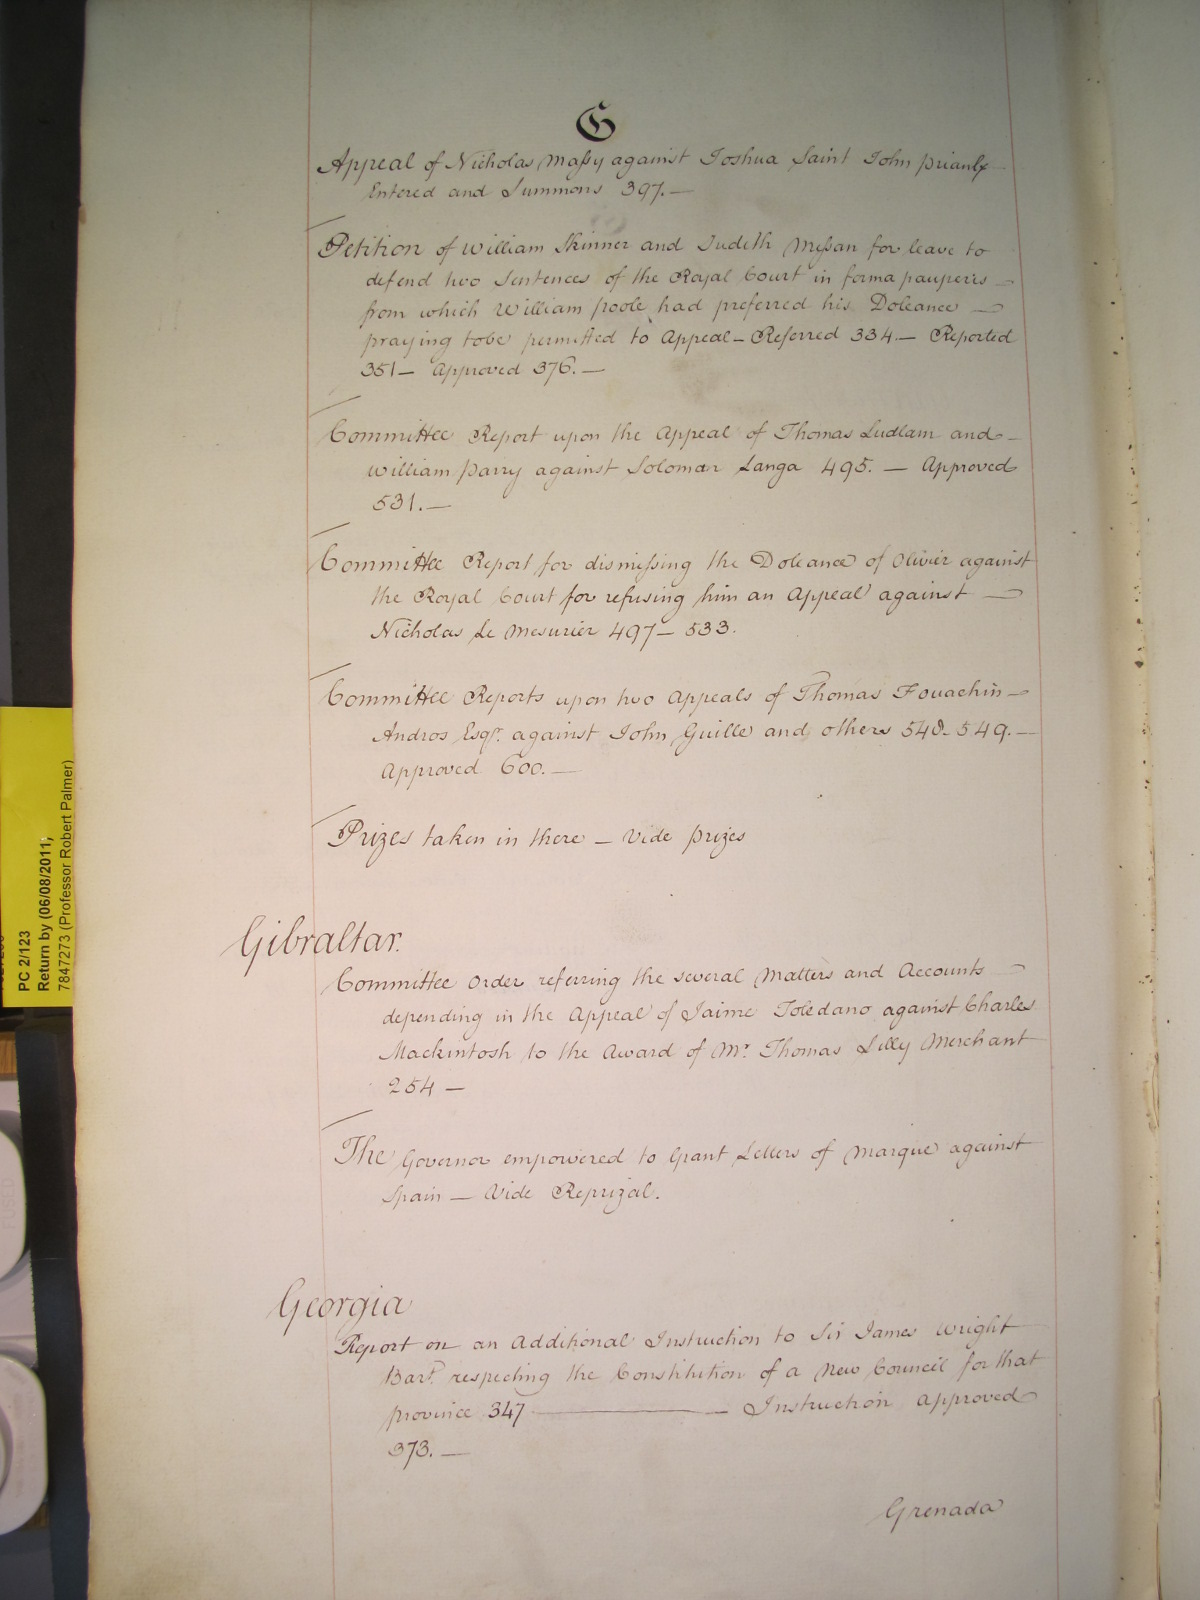 G
Appeal of Nicholas Maſsy against Joshua Saint John Prianlx
Entered and Summons 397.—
Petition of William Skinner and Judith Meſsan for leave to
defend two Sentences of the Royal Court in forma pauperis —
from which William Poole had preferred his Doleance —
praying to be permitted to Appeal — Referred 334.— Reported
351 — Approved 376.—
Committee Report upon the Appeal of Thomas Ludlam and —
William Parry against Solomon Langa 495. — Approved
531.—
Committee Report for dismiſsing the Doleance of Olivier against
the Royal Court for refusing him an Appeal against —
Nicholas Le Mesurier 497 — 533.
Committee Reports upon two Appeals of Thomas Fouachin —
Andros Esqr. against John Guille and others 548 - 549.—
Approved 600.—
Prizes taken in there — Vide Prizes
Gibraltar.
Committee Order referring the several Matters and Accounts —
depending in the Appeal of Jaime Toledano against Charles
Mackintosh to the Award of Mr. Thomas Lilly Merchant
254 —
The Governor empowered to Grant Letters of Marque against
Spain — Vide Reprizal.
Georgia
Report on an Additional Instruction to Sir James Wright
Bart. respecting the Constitution of a New Council for that
province 347 ——— Instruction approved
373.—
Grenada
PC 2/123
Return by (06/08/2011;
7847273 (Professor Robert Palmer)